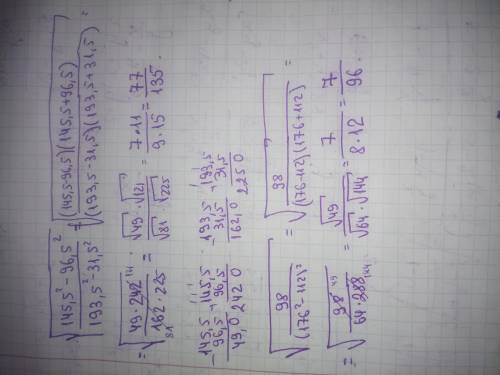 √((145,5² - 96,5²)/(193,5² - 31,5²)) = √((145,5-96,5)(145,5+96,5)/((193,5-31,5)(193,5+31,5))) =
= √((49 · 242 121)/(162 81 · 225)) = (√49 · √121)/(√81 · √225) = (7 · 11)/(9 · 15) = 77/135.
-145,5 +145,5 -193,5 +193,5
96,5 96,5 31,5 31,5
49,0 242 0 162,0 225 0
√(98/(176² - 112²)) = √(98/((176-112)(176+112))) =
= √(98 49/(64 · 288 144)) = √49/(√64 · √144) = 7/(8 · 12) = 7/96.